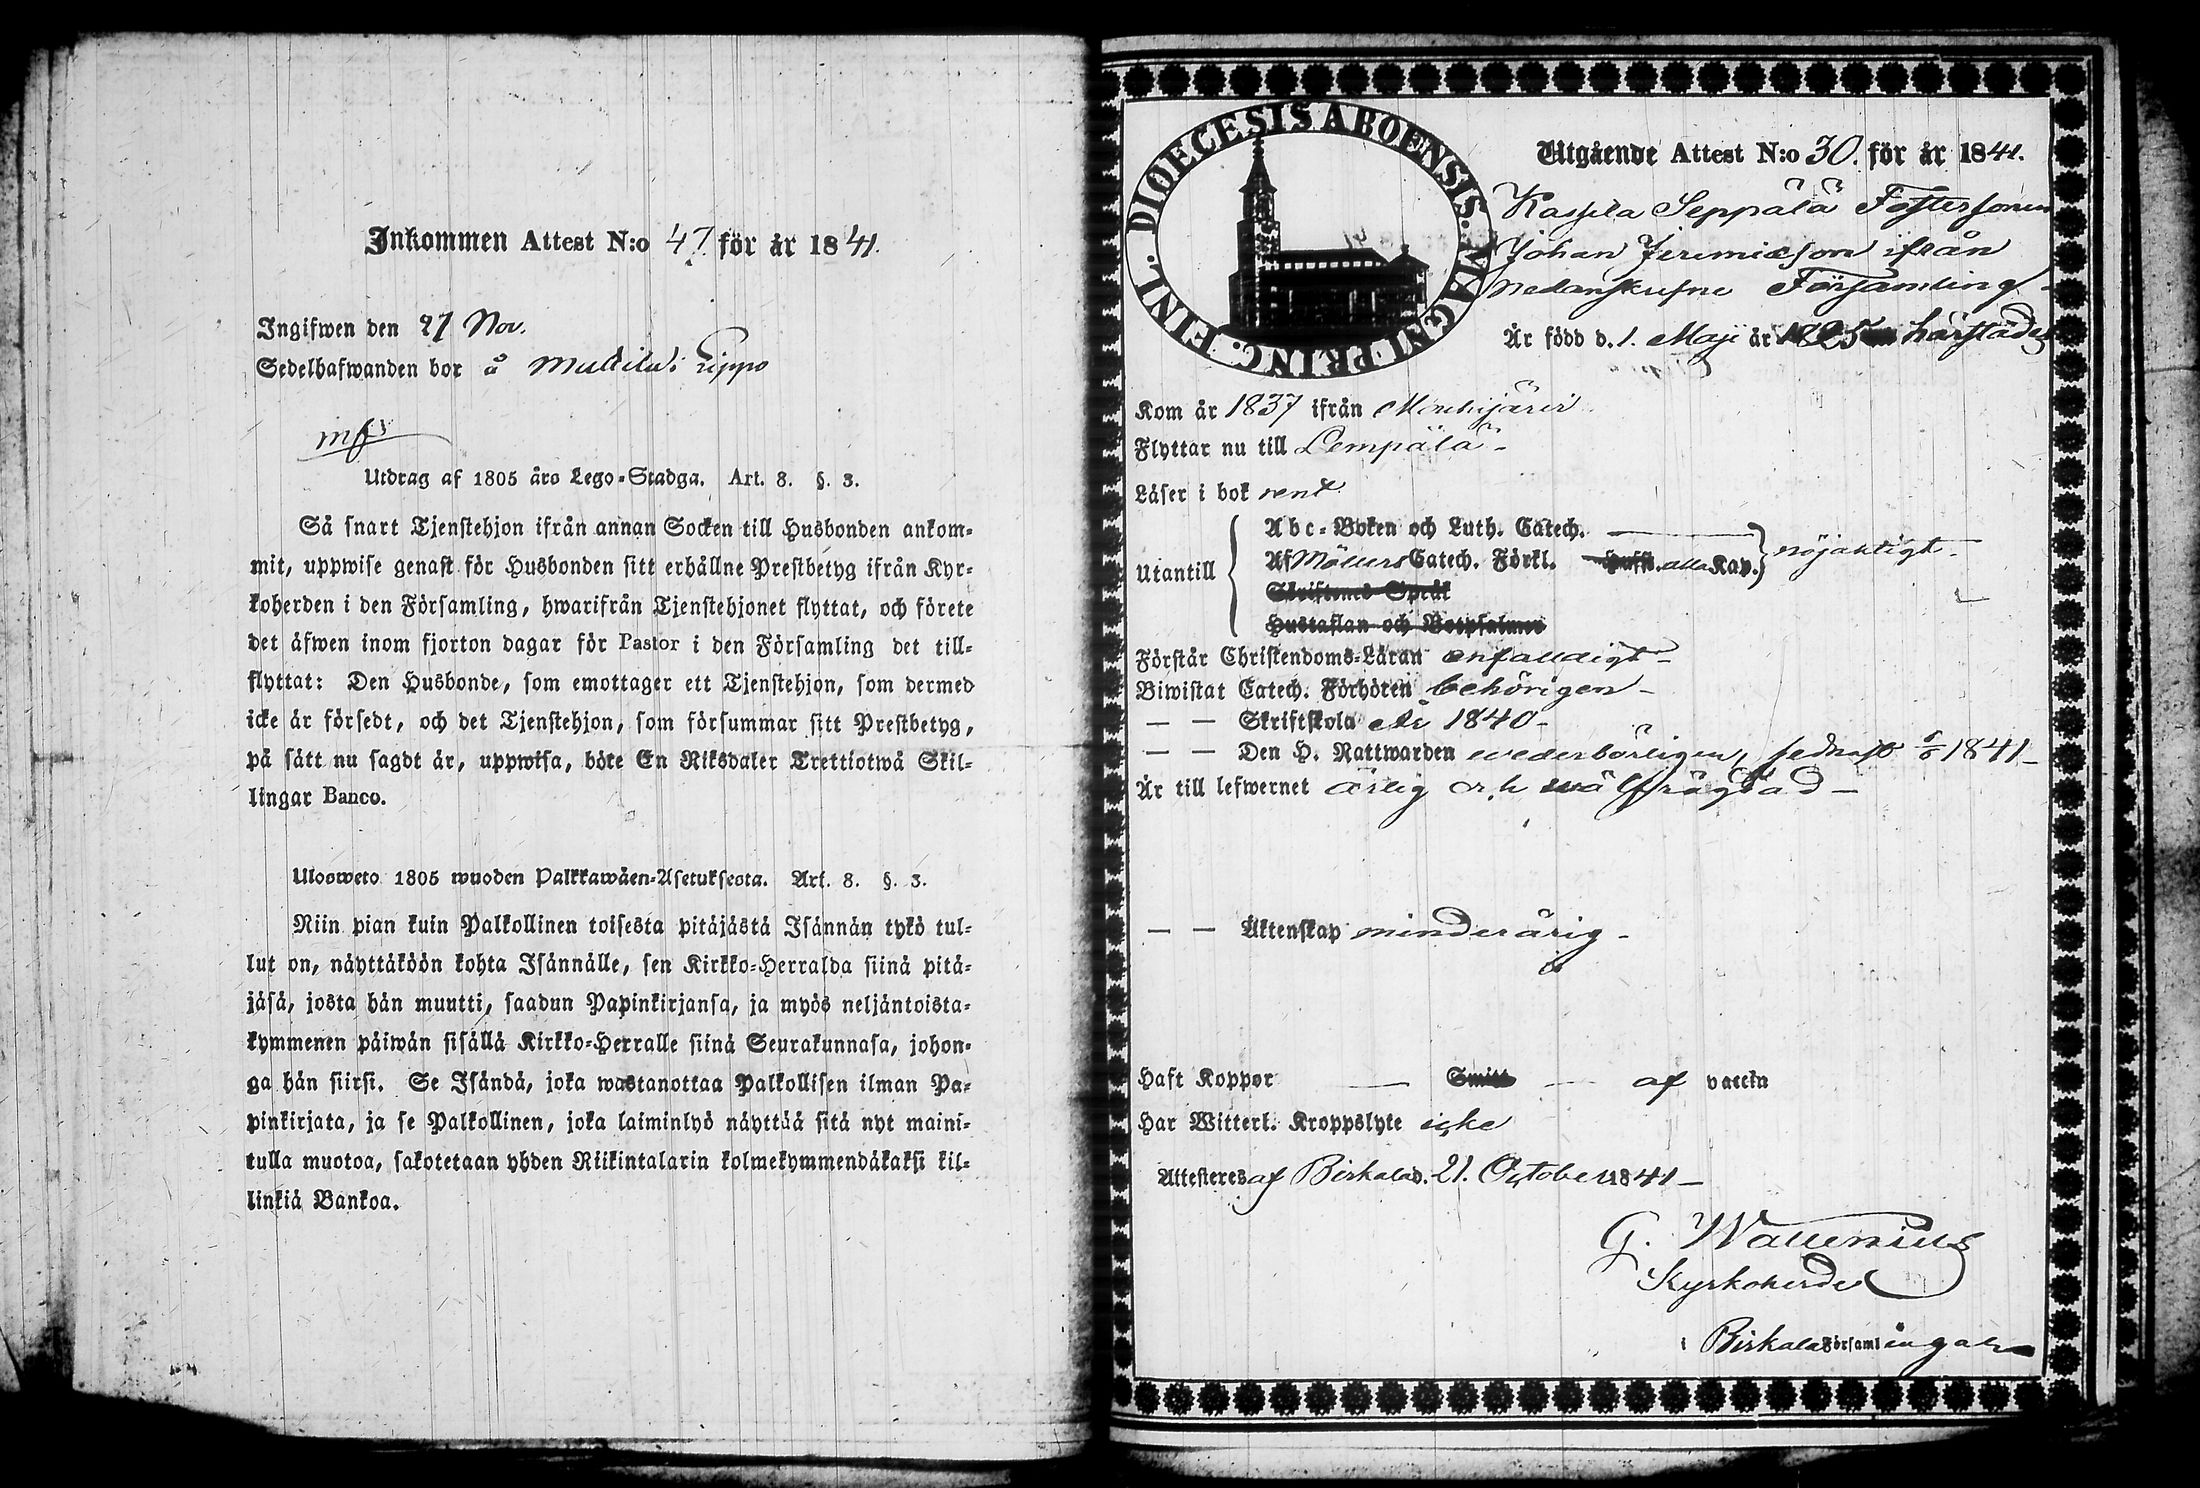 Inkommen Attest N:o 47 för år 1841.
Ingifwen den 27 Nov.
Sedelhafwanden bor å Multila: Lippo
Utdrag af 1805 års Lego-Stadga. Art. 8. §. 3.
Så snart Tjenstehjon ifrån annan Socken till Husbonden ankom-
mit, uppwise genast för Husbonden sitt erhållne Prestbetyg ifrån Kyr-
koherden i den Församling, hwarifrån Tjenstehjonet flyttat, och förete
det äfwen inom fjorton dagar för Pastor i den Församling det till-
flyttat: Den Husbonde, som emottager ett Tjenstehjon, som dermed
icke är försedt, och det Tjenstehjon, som försummar sitt Prestbetyg,
på sätt nu sagdt är, uppwisa, böte En Riksdaler Trettiotwå Skil-
lingar Banco.
Ulosweto 1805 wuoden Palkkawäen-Asetuksesta. Art. 8. §. 3.
Niin pian kuin Palkollinen toisesta pitäjästä Isännän tykö tul-
lut on, näyttäköön kohta Isännälle, sen Kirkko-Herralda siinä pitä-
jäsä, josta hän muutti, saadun Papinkirjansa, ja myös neljäntoista-
kymmenen päiwän sisällä Kirkko-Herralle siinä Seurakunnasa, johon-
ga hän siirsi. Se Isändä, joka wastanottaa Palkollisen ilman Pa-
pinkirjata, ja se Palkollinen, joka laiminlyö näyttää sitä nyt maini-
tulla muotoa, sakotetaan yhden Riikintalarin kolmekymmendäkaksi kil-
linkiä Bankoa.
DIOECESIS ABOENSIS. MAGNI PRINC. FINL.
Utgående Attest N:o 30. för år 1841.
Seppälä Fostersonen
Johan Jeremiæson ifrån
nedanskrefne Församling
Är född d. 1. Maji år 1825 härstädes
Kom år 1837 ifrån Mouhijärvi
Flyttar nu till Lempälä
Läser i bok rent
Utantill
Abc-Boken och Luth. Catech.
Af Möllers Catech. Förkl. Huffs. alla Kap. nöjaktigt
Skriftenes Språk
Hustaflan och Botpsalmer
Förstår Christendoms-Läran enfaldigt
Biwistat Catech. Förhören behörigen
— — Skriftskola År 1840
— — Den H. Nattwarden wederbörligen, sednast 1841
Är till lefwernet ärlig och wälfrägdad
— — Äktenskap minderårig
Haft Koppor — Smitt — af vaccin
Har Witterl. Kroppslyte icke
Attesteres af Birkala d. 21. October 1841
G. Wallenius
Kyrkoherde
i Birkala Församlingar